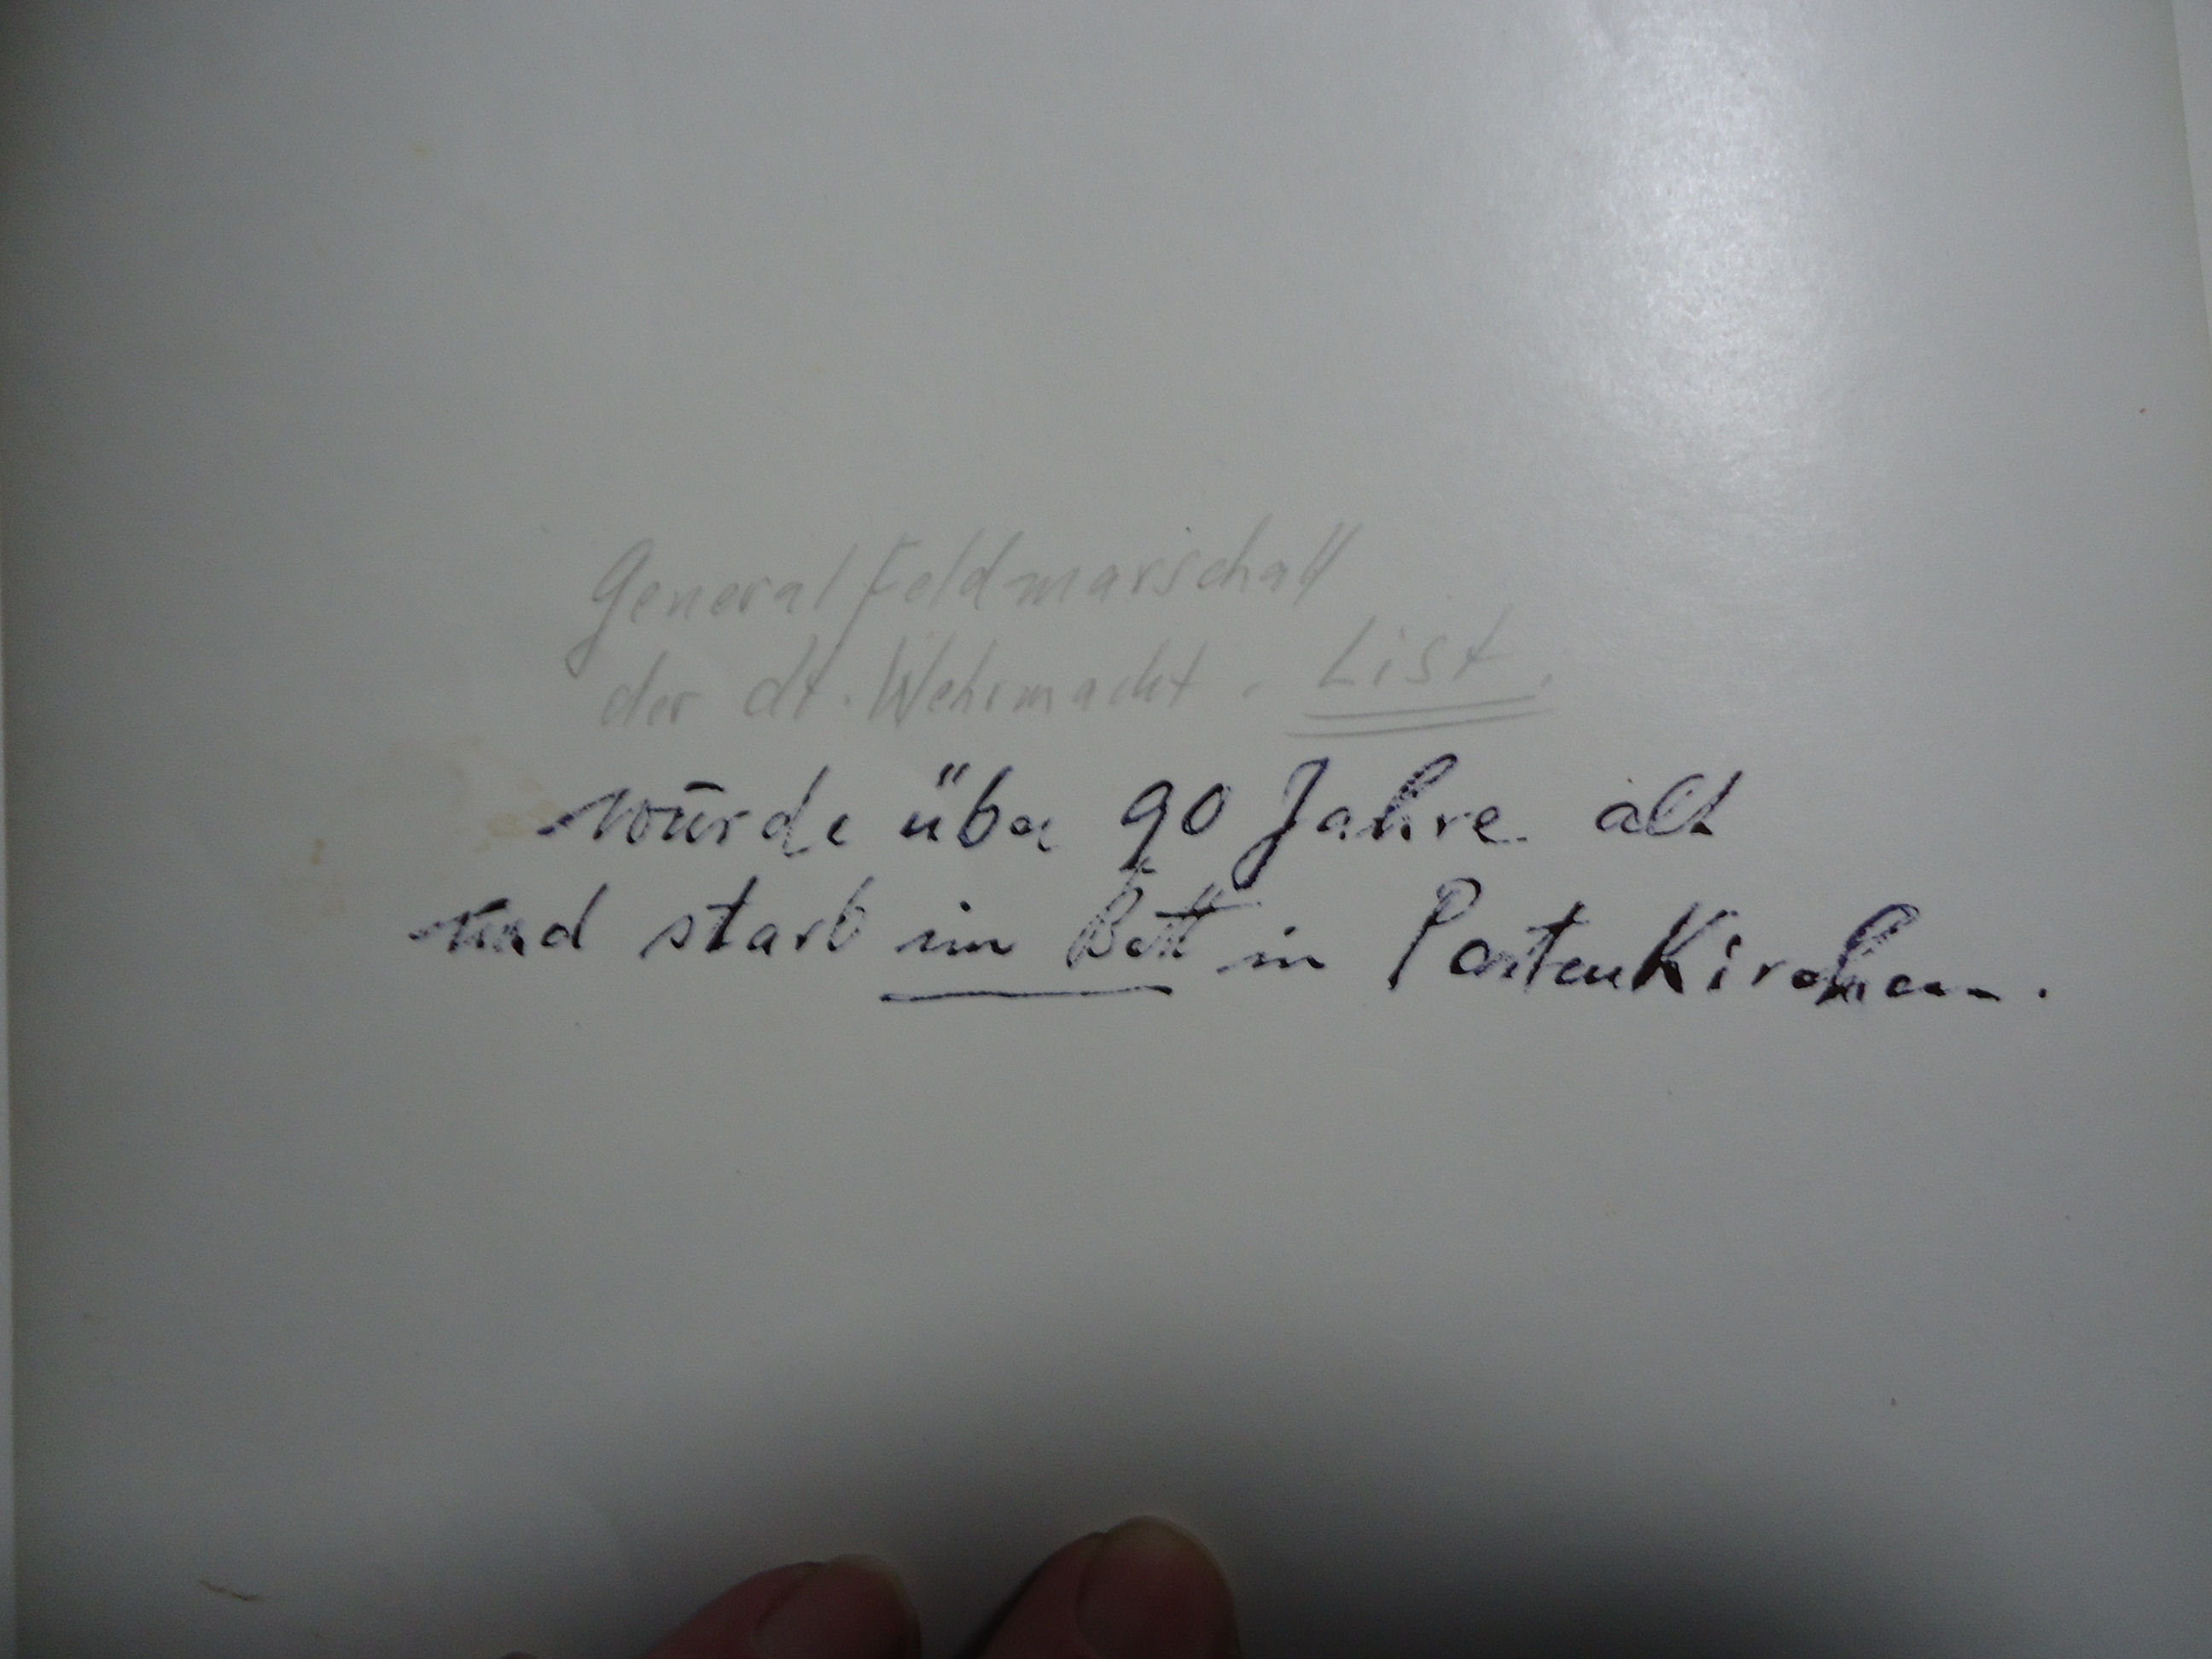 Generalfeldmarschall
der dt. Wehrmacht. List.
wurde über 90 Jahre alt
und starb im Bett in Partenkirchen.